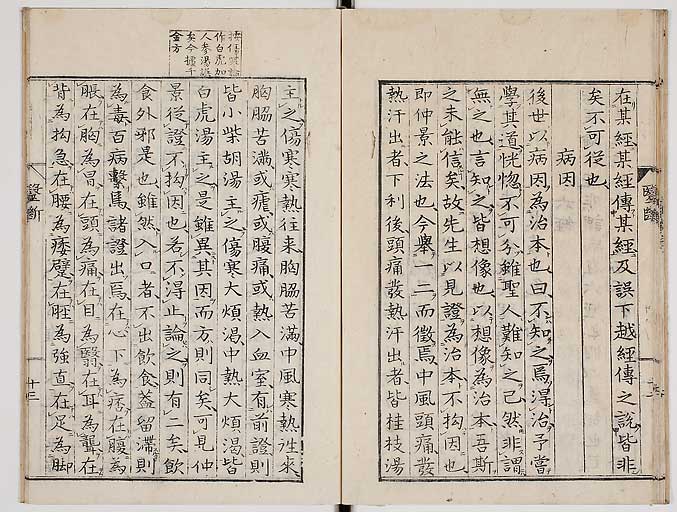 在某經某經傳某經及誤下越經傳之說皆非
矣不可從也
病因
後世以病因為治本也曰不知之焉得治予嘗
學其道恍惚不可分雖聖人難知之已然非謂
無之也言知之皆想像也以想像為治本吾斯
之未能信矣故先生以見證為治本不拘因也
即仲景之法也今舉一二而徵焉中風頭痛發
熱汗出者下利後頭痛發熱汗出者皆桂枝湯
主之傷寒寒熱往來胸脇苦滿中風寒熱往來
胸脇苦滿或瘧或腹痛或熱入血室有前證則
皆小柴胡湯主之傷寒大煩渴中熱大煩渴皆
白虎湯主之是雖異其因而方則同矣可見仲
景從證不拘因也若不得止論之則有二矣飲
食外邪是也雖然入口者不出飲食蓋留滯則
為毒百病繫焉諸證出焉在心下為痞在腹為
脹在胸為冒在頭為痛在目為翳在耳為聾在
背為拘急在腰為痿躄在脛為強直在足為脚
作白虎加
人參湯
矣今據千
金方
醫斷
醫斷
十三